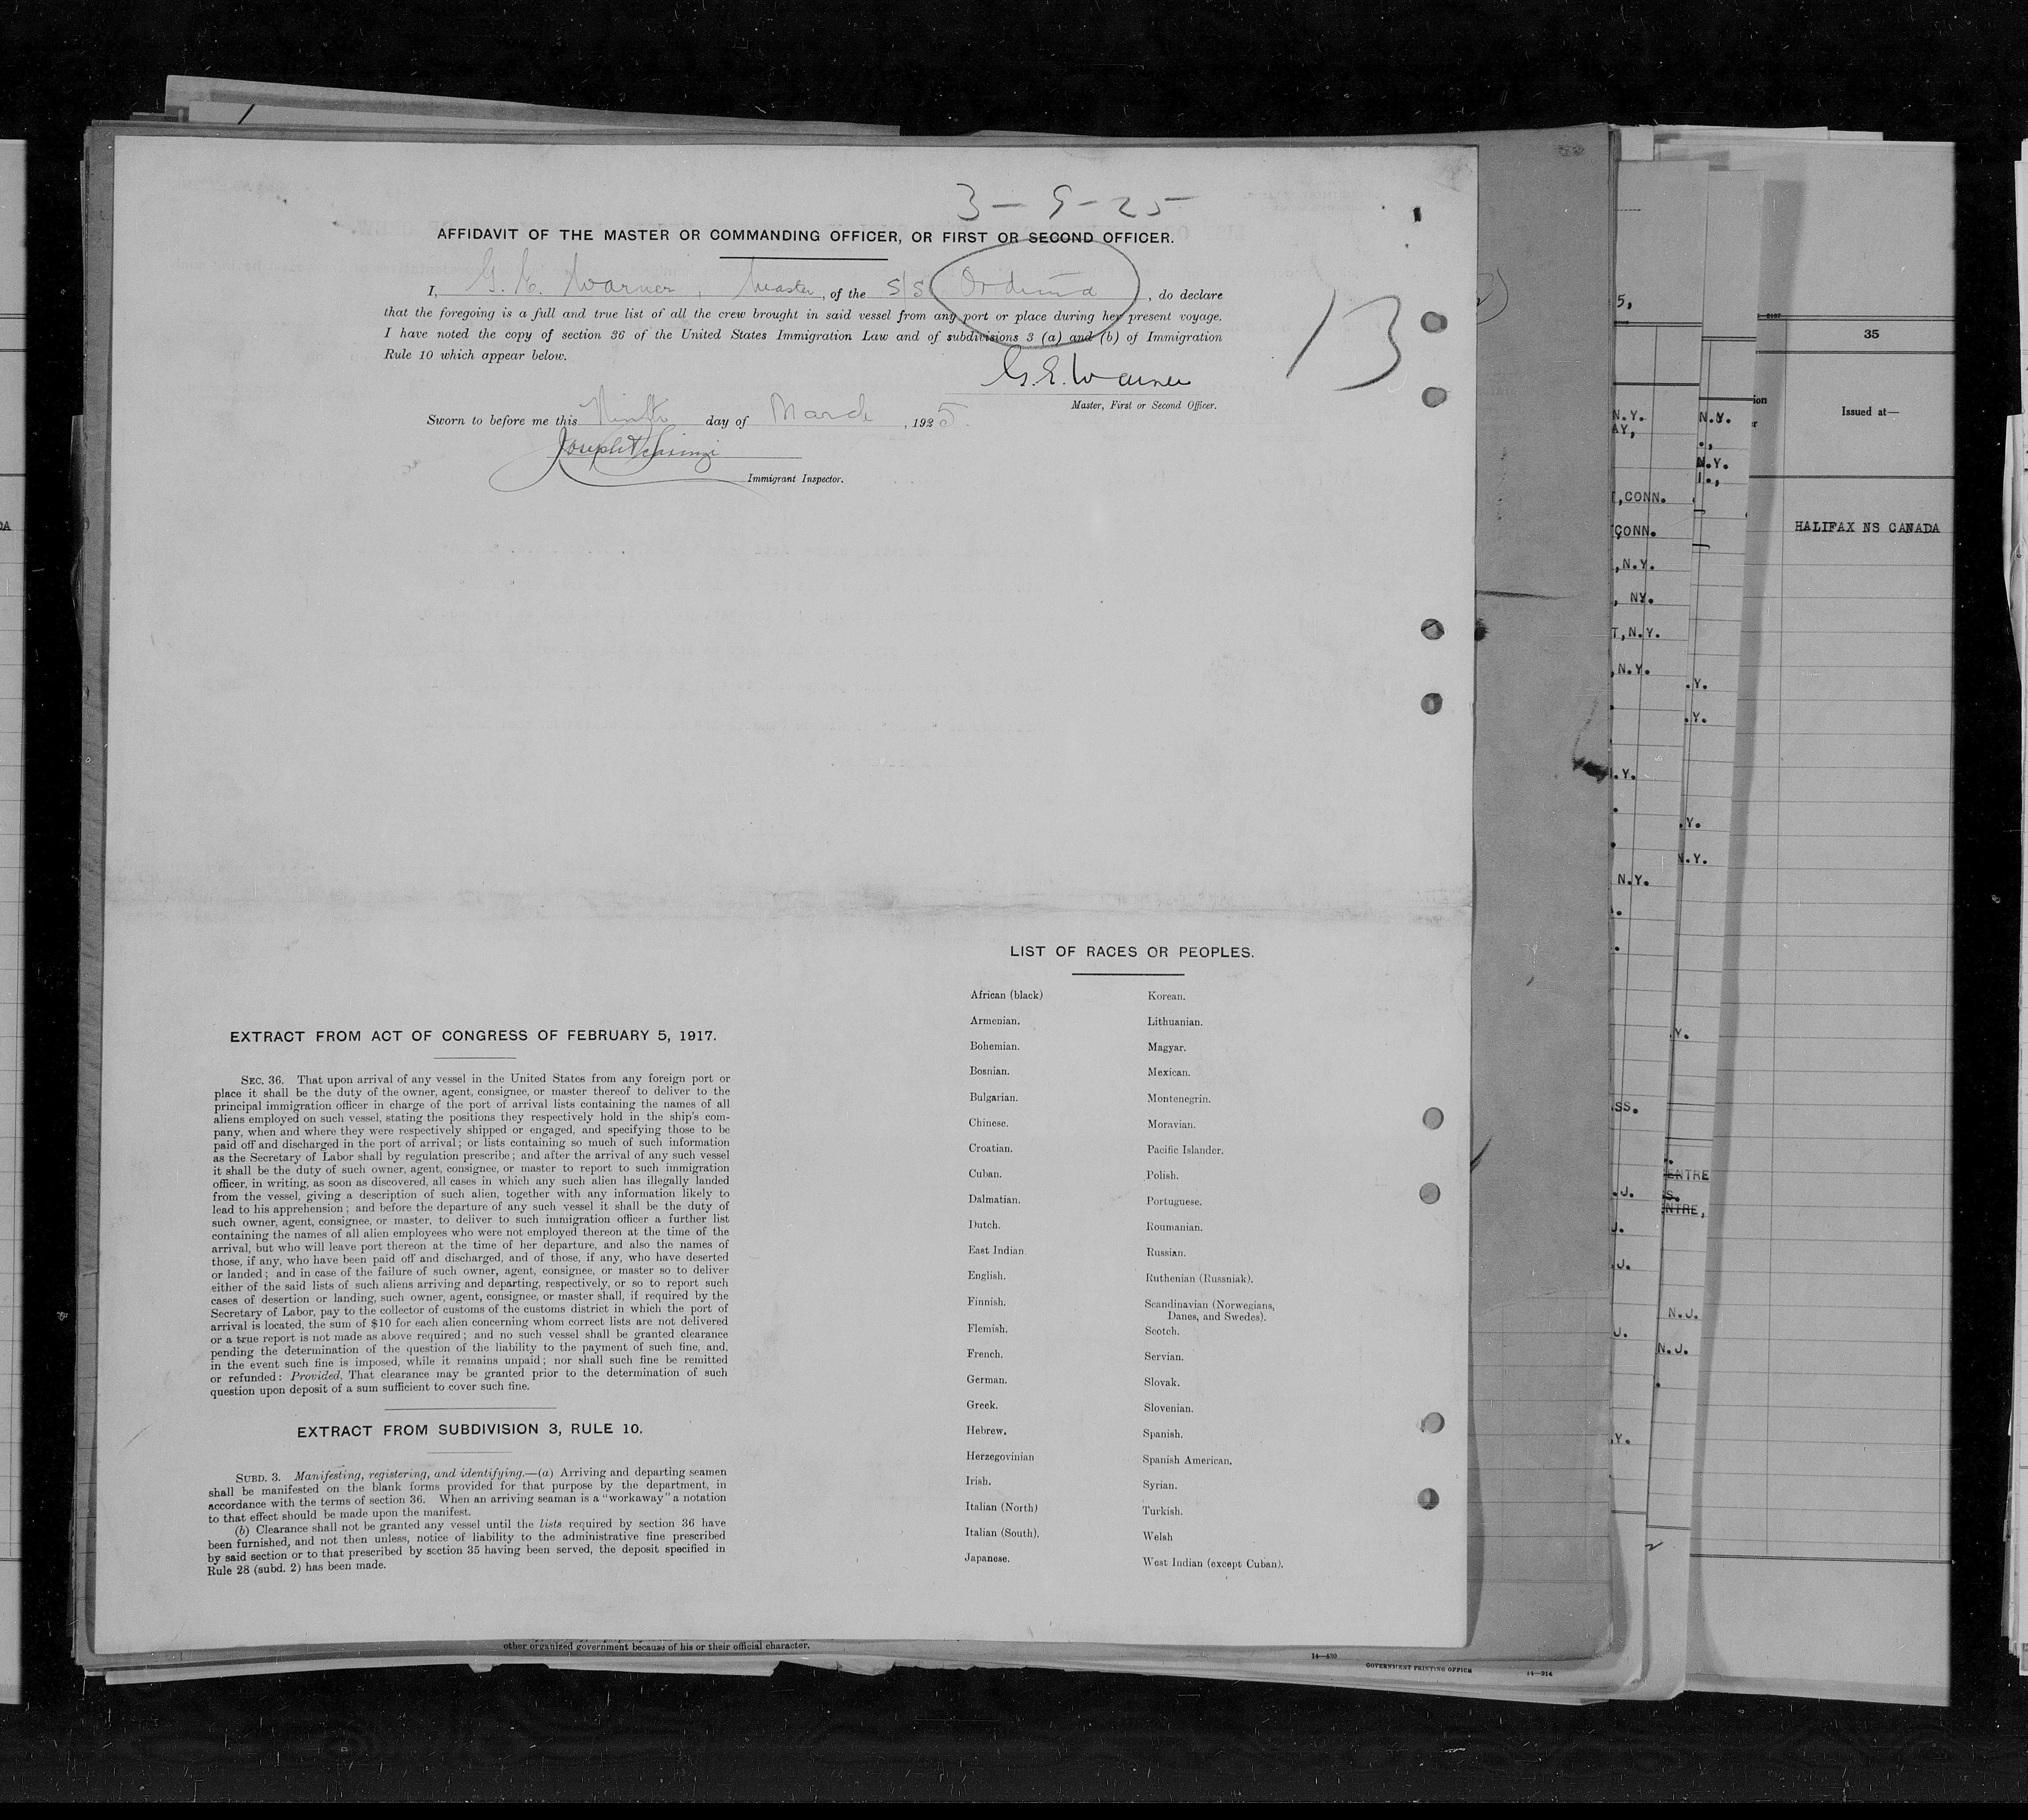 3-9-25
AFFIDAVIT OF THE MASTER OR COMMANDING OFFICER, OR FIRST OR SECOND OFFICER.
I, G. E. Warner, Master, of the S/S Orduna, do declare
that the foregoing is a full and true list of all the crew brought in said vessel from any port or place during her present voyage.
I have noted the copy of section 36 of the United States Immigration Law and of subdivisions 3 (a) and (b) of Immigration
Rule 10 which appear below.
13
G. E. Warner
Master, First or Second Officer.
Sworn to before me this Ninth day of March, 1925.
Joseph
Immigrant Inspector.
EXTRACT FROM ACT OF CONGRESS OF FEBRUARY 5, 1917.
SEC. 36. That upon arrival of any vessel in the United States from any foreign port or
place it shall be the duty of the owner, agent, consignee, or master thereof to deliver to the
principal immigration officer in charge of the port of arrival lists containing the names of all
aliens employed on such vessel, stating the positions they respectively hold in the ship's com-
pany, when and where they were respectively shipped or engaged, and specifying those to be
paid off and discharged in the port of arrival; or lists containing so much of such information
as the Secretary of Labor shall by regulation prescribe; and after the arrival of any such vessel
it shall be the duty of such owner, agent, consignee, or master to report to such immigration
officer, in writing, as soon as discovered, all cases in which any such alien has illegally landed
from the vessel, giving a description of such alien, together with any information likely to
lead to his apprehension; and before the departure of any such vessel it shall be the duty of
such owner, agent, consignee, or master, to deliver to such immigration officer a further list
containing the names of all alien employees who were not employed thereon at the time of the
arrival, but who will leave port thereon at the time of her departure, and also the names of
those, if any, who have been paid off and discharged, and of those, if any, who have deserted
or landed; and in case of the failure of such owner, agent, consignee, or master so to deliver
either of the said lists of such aliens arriving and departing, respectively, or so to report such
cases of desertion or landing, such owner, agent, consignee, or master shall, if required by the
Secretary of Labor, pay to the collector of customs of the customs district in which the port of
arrival is located, the sum of $10 for each alien concerning whom correct lists are not delivered
or a true report is not made as above required; and no such vessel shall be granted clearance
pending the determination of the question of the liability to the payment of such fine, and,
in the event such fine is imposed, while it remains unpaid; nor shall such fine be remitted
or refunded: Provided, That clearance may be granted prior to the determination of such
question upon deposit of a sum sufficient to cover such fine.
EXTRACT FROM SUBDIVISION 3, RULE 10.
SUBD. 3. Manifesting, registering, and identifying.—(a) Arriving and departing seamen
shall be manifested on the blank forms provided for that purpose by the department, in
accordance with the terms of section 36. When an arriving seaman is a "workaway" a notation
to that effect should be made upon the manifest.
(b) Clearance shall not be granted any vessel until the lists required by section 36 have
been furnished, and not then unless, notice of liability to the administrative fine prescribed
by said section or to that prescribed by section 35 having been served, the deposit specified in
Rule 28 (subd. 2) has been made.
LIST OF RACES OR PEOPLES.
African (black)
Armenian.
Bohemian.
Bosnian.
Bulgarian.
Chinese.
Croatian.
Cuban.
Dalmatian.
Dutch.
East Indian
English.
Finnish.
Flemish.
French.
German.
Greek.
Hebrew.
Herzegovinian
Irish.
Italian (North)
Italian (South).
Japanese.
Korean.
Lithuanian.
Magyar.
Mexican.
Montenegrin.
Moravian.
Pacific Islander.
Polish.
Portuguese.
Roumanian.
Russian.
Ruthenian (Russniak).
Scandinavian (Norwegians,
Danes, and Swedes).
Scotch.
Servian.
Slovak.
Slovenian.
Spanish.
Spanish American.
Syrian.
Turkish.
Welsh
West Indian (except Cuban).
other organized government because of his or their official character.
14—430
GOVERNMENT PRINTING OFFICE
14—914
5,
N.Y.
AY,
,CONN.
CONN.
,N.Y.
, NY.
T,N.Y.
,N.Y.
.Y.
N.Y.
SS.
.J.
J.
.J.
J.
.Y.
N.Y.
.,
N.Y.
.Y.
.Y.
.Y.
N.Y.
.Y.
ENTRE
S.
NTRE,
N.J.
N.J.
35
Issued at—
HALIFAX NS CANADA
DA